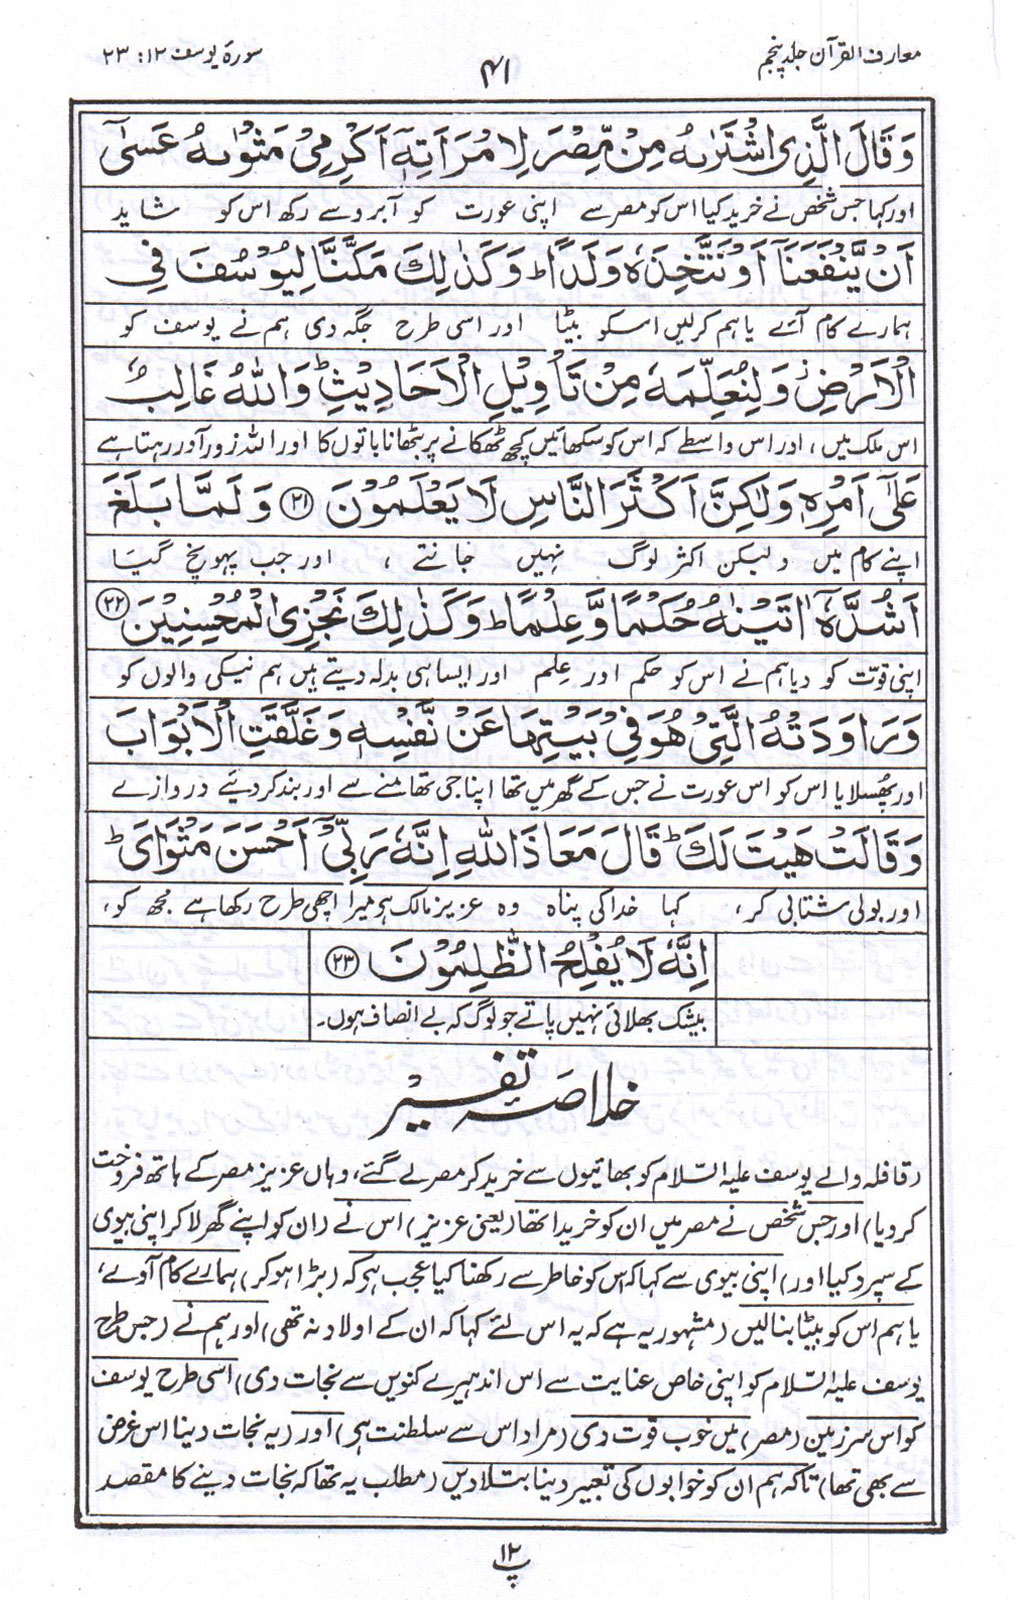 معارف القرآن جلد پنجم
۴۱
سورۃ یوسف ۱۲: ۲۳
وَقَالَ الَّذِی اشْتَرٰىهُ مِنْ مِّصْرَ لِامْرَاَتِهٖٓ اَكْرِمِیْ مَثْوٰىهُ عَسٰٓى
اور کہا جس شخص نے خرید کیا اس کو مصر سے اپنی عورت کو آبرو سے رکھ اس کو شاید
اَنْ یَّنْفَعَنَآ اَوْ نَتَّخِذَهٗ وَلَدًا ؕ وَكَذٰلِكَ مَكَّنَّا لِیُوْسُفَ فِی
ہمارے کام آئے یا ہم کرلیں اسکو بیٹا اور اسی طرح جگہ دی ہم نے یوسف کو
الْاَرْضِ ؗ وَلِنُعَلِّمَهٗ مِنْ تَاْوِیْلِ الْاَحَادِیْثِ ؕ وَاللّٰهُ غَالِبٌ
اس ملک میں، اور اس واسطے کہ اس کو سکھائیں کچھ ٹھکانے پر بٹھانا باتوں کا اور اللہ زور آور رہتا ہے
عَلٰٓى اَمْرِهٖ وَلٰكِنَّ اَكْثَرَ النَّاسِ لَا یَعْلَمُوْنَ ﴿۲۱﴾ وَلَمَّا بَلَغَ
اپنے کام میں ولیکن اکثر لوگ نہیں جانتے ، اور جب پہونچ گیا
اَشُدَّهٗٓ اٰتَیْنٰهُ حُكْمًا وَّعِلْمًا ؕ وَكَذٰلِكَ نَجْزِی الْمُحْسِنِیْنَ ﴿۲۲﴾
اپنی قوّت کو دیا ہم نے اس کو حکم اور عِلم اور ایسا ہی بدلہ دیتے ہیں ہم نیکی والوں کو
وَرَاوَدَتْهُ الَّتِیْ هُوَ فِیْ بَیْتِهَا عَنْ نَّفْسِهٖ وَغَلَّقَتِ الْاَبْوَابَ
اور پُھسلایا اس کو اس عورت نے جس کے گھر میں تھا اپنا جی تھامنے سے اور بند کر دیئے دروازے
وَقَالَتْ هَیْتَ لَكَ ؕ قَالَ مَعَاذَ اللّٰهِ اِنَّهٗ رَبِّیْٓ اَحْسَنَ مَثْوَایَ ؕ
اور بولی شتابی کر، کہا خدا کی پناہ وہ عزیز مالک ہو میرا اچھی طرح رکھا ہے مجھ کو،
اِنَّهٗ لَا یُفْلِحُ الظّٰلِمُوْنَ ﴿۲۳﴾
بیشک بھلائی نہیں پاتے جو لوگ کہ بے انصاف ہوں۔
خلاصۂ تفسیر
(قافلہ والے یوسف علیہ السّلام کو بھائیوں سے خرید کر مصر لے گئے، وہاں عزیز مصر کے ہاتھ فروخت
کر دیا) اور جس شخص نے مصر میں ان کو خریدا تھا (یعنی عزیز) اس نے (ان کو اپنے گھر لا کر اپنی بیوی
کے سپرد کیا اور) اپنی بیوی سے کہا کہ اس کو خاطر سے رکھنا کیا عجب ہو کہ (بڑا ہو کر) ہمارے کام آوے،
یا ہم اس کو بیٹا بنا لیں (مشہور یہ ہے کہ یہ اس لئے کہا کہ ان کے اولاد نہ تھی) اور ہم نے (جس طرح
یوسف علیہ السّلام کو اپنی خاص عنایت سے اس اندھیرے کنویں سے نجات دی) اسی طرح یوسف
کو اس سرزمین (مصر) میں خوب قوت دی (مراد اس سے سلطنت ہو) اور (یہ نجات دینا اس غرض
سے بھی تھا) تاکہ ہم ان کو خوابوں کی تعبیر دینا بتلا دیں (مطلب یہ تھا کہ نجات دینے کا مقصد
پ ۱۲